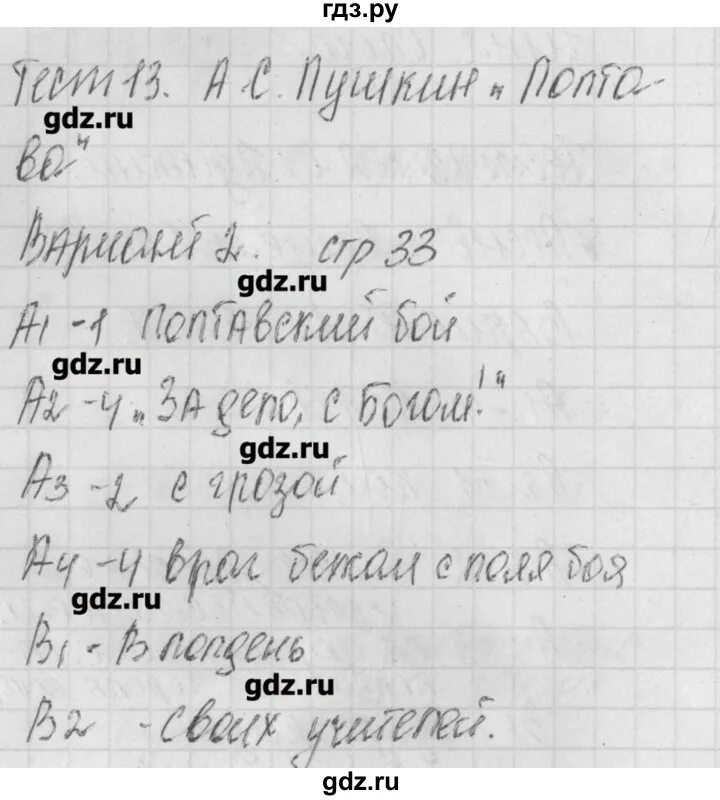 гдз.ру
Тест 13. А.С. Пушкин „Полта-
gdz.ru
ва"
Вариант 2. стр 33
gdz.ru
А1 -1 Полтавский бой
gdz.ru
А2 -4 „За дело, с Богом!"
gdz.ru
А3 -2 с грозой
А4 -4 враг бежал с поля боя
gdz.ru
В1 - В полдень
gdz.ru
В2 - своих учителей.
gdz.ru